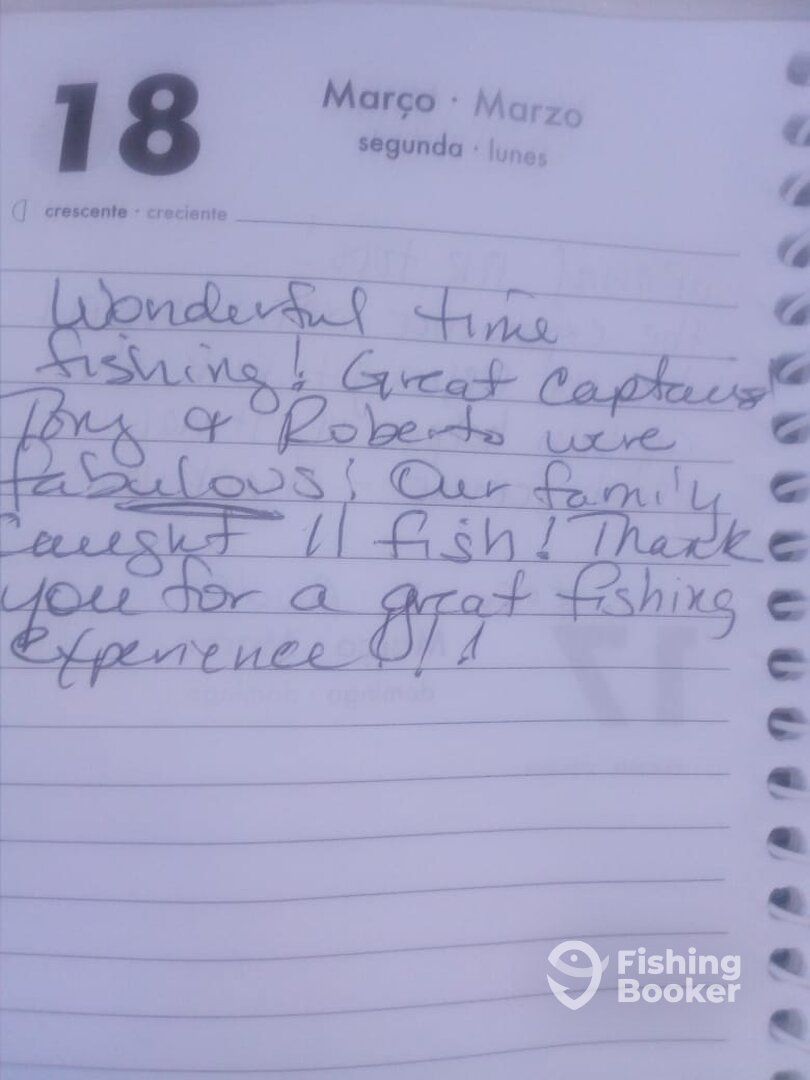 18
Março · Marzo
segunda · lunes
crescente · creciente
Wonderful time
fishing! Great captains
Tony & Roberto were
fabulous! Our family
caught 11 fish! Thank
you for a great fishing
experience!!!
17
domingo · domingo
Fishing
Booker